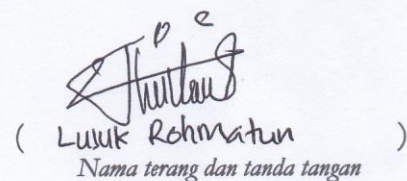 ( Lusuk Rohmatun )
Nama terang dan tanda tangan